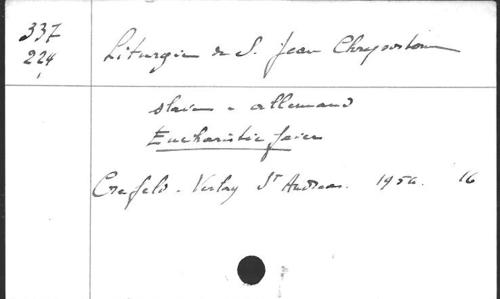 337
224
Liturgie de S. Jean Chrysostome
slave - allemand
Eucharistiefeier
Crefeld - Verlag St Andreas. 1950. 16